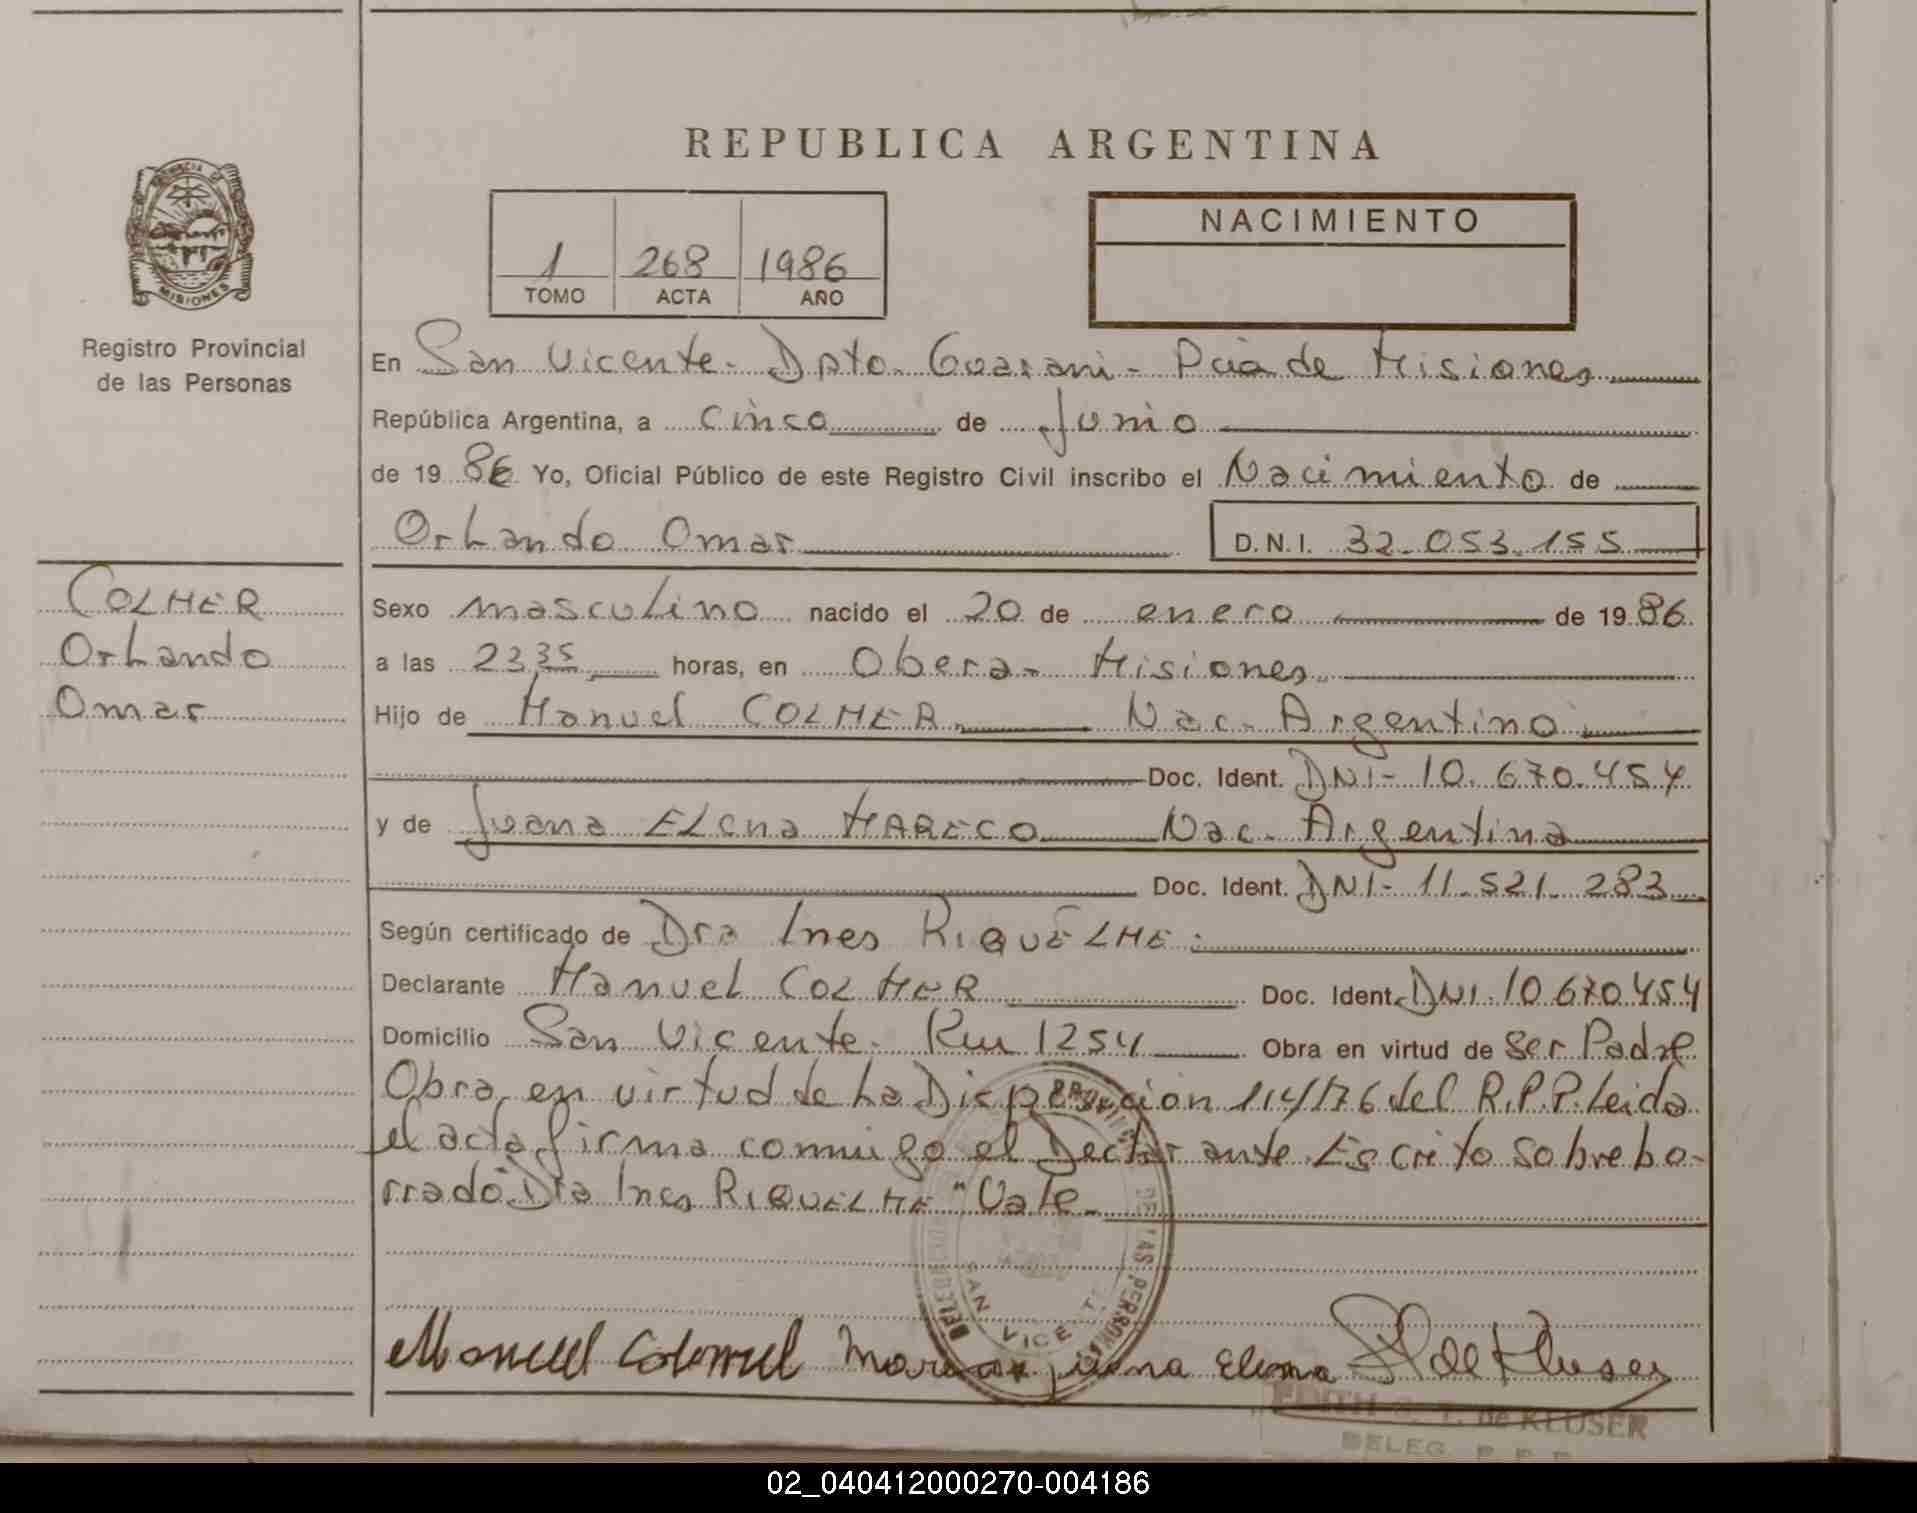 REPUBLICA ARGENTINA
PROVINCIA DE
MISIONES
Registro Provincial
de las Personas
1 268 1986
TOMO ACTA AÑO
NACIMIENTO
En San Vicente - Dpto Guarani - Pcia de Misiones
República Argentina, a cinco de Junio
de 1986 Yo, Oficial Público de este Registro Civil inscribo el Nacimiento de
Orlando Omar D.N.I. 32.053.155
COLMER
Orlando
Omar
Sexo masculino nacido el 20 de enero de 1986
a las 23,35 horas, en Obera - Misiones
Hijo de Manuel COLMER Nac. Argentino
Doc. Ident. DNI - 10.670.454
y de Juana ELena MARECO Nac. Argentina
Doc. Ident. DNI - 11.521.283
Según certificado de Dra Ines RIQUELME
Declarante Manuel COLMER Doc. Ident. DNI. 10.670454
Domicilio San Vicente. Km 1254 Obra en virtud de Ser Padre
Obra en virtud de La Disposición 114/76 del R.P.P. Leida
el acta firma conmigo el Declarante. Escrito sobre bo-
rrado "Dra Ines RIQUELME" Vale.
DE LAS PERSONAS
SAN VICENTE
Manuel Juana Elena de Kluser
EDITH G. T. de KLUSER
DELEG. R. P. P.
02_040412000270-004186